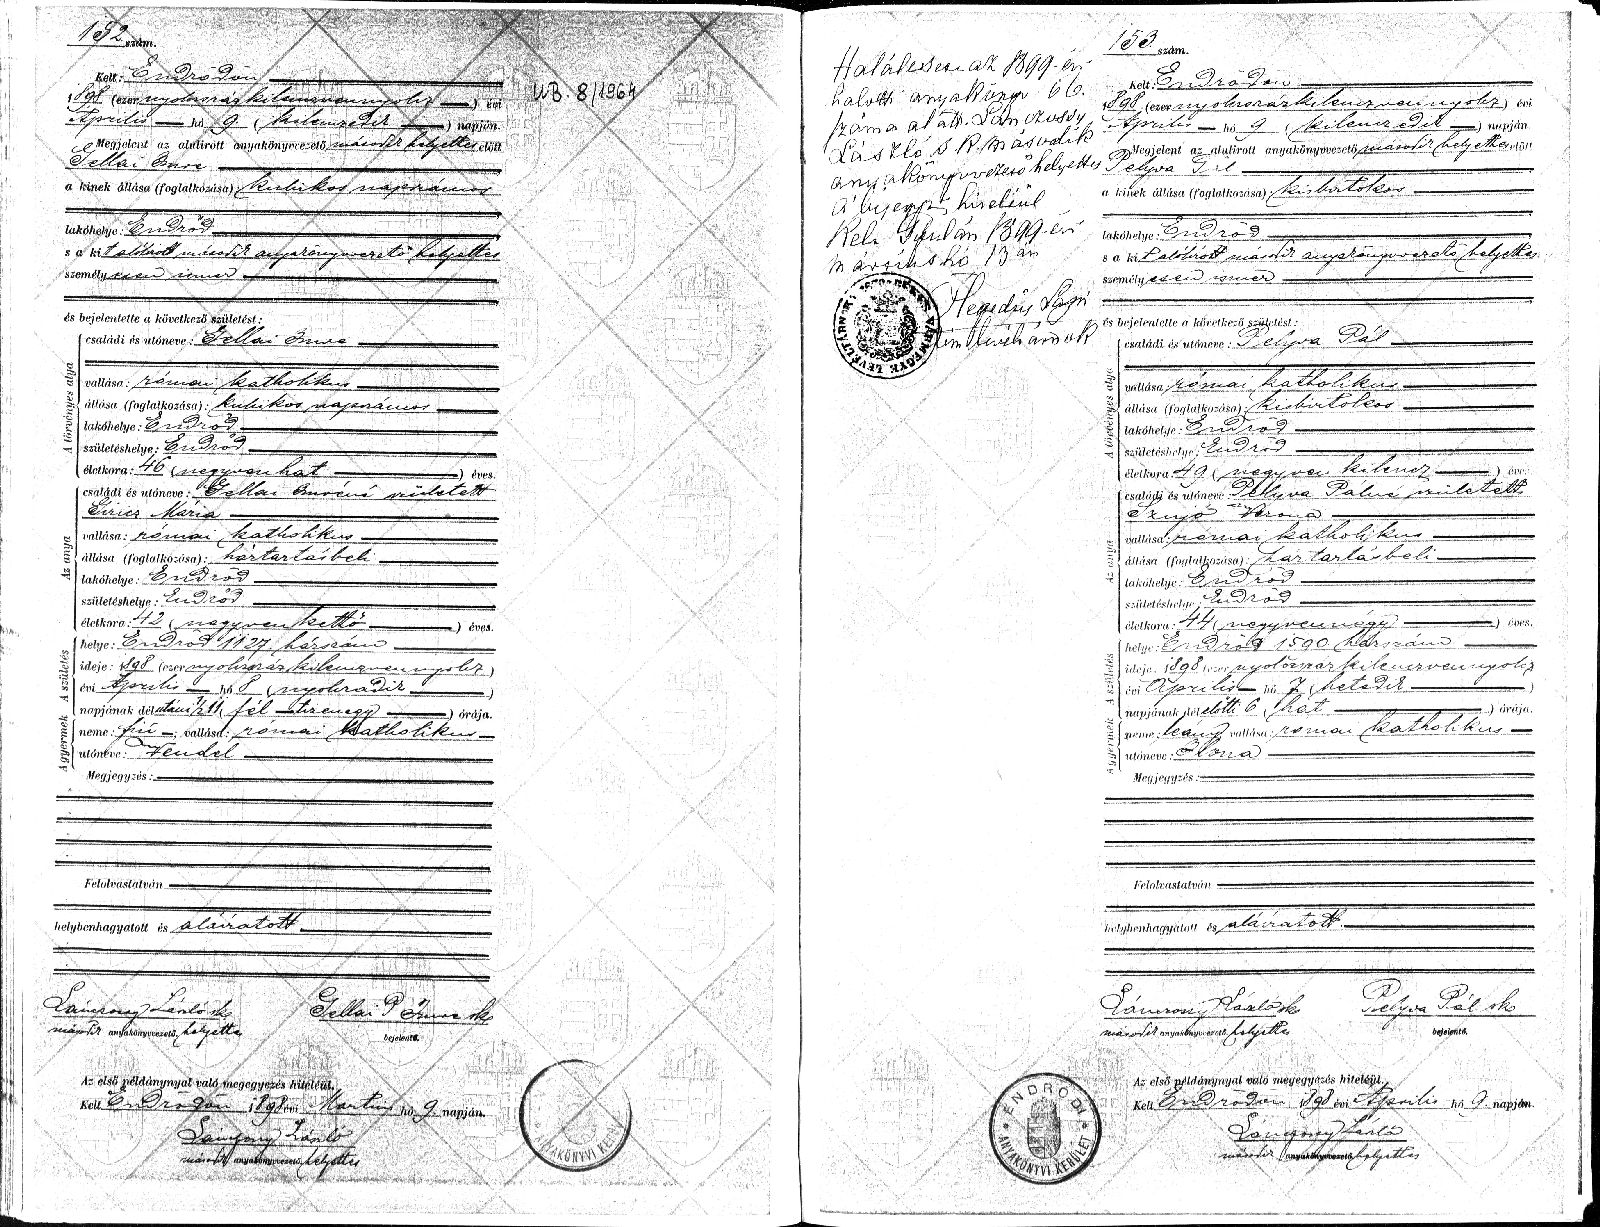 152 szám.
Kelt: Endrődön
1898 (ezer nyolcszáz kilenczven nyolcz) évi
Április hó 9 (kilenczedik) napján.
Megjelent az alulirott anyakönyvvezető, második helyettes előtt
Gellai Imre
a kinek állása (foglalkozása) kubikos napszámos
lakóhelye: Endrőd
s a kit alólirott második anyakönyvvezető helyettes
személyesen ismer
és bejelentette a következő születést:
A törvényes atya
családi és utóneve: Gellai Imre
vallása: római katholikus
állása (foglalkozása): kubikos napszámos
lakóhelye: Endrőd
születéshelye: Endrőd
életkora: 46 (negyven hat) éves.
Az anya
családi és utóneve: Gellai Imréné született
Giricz Mária
vallása: római katholikus
állása (foglalkozása): háztartásbeli
lakóhelye: Endrőd
születéshelye: Endrőd
életkora: 42 (negyven kettő) éves.
A születés
helye: Endrőd 1127 házszám
ideje: 1898 (ezer nyolcszáz kilenczven nyolcz)
évi Április hó 8 (nyolczadik)
napjának délutáni 1/2 11 (fél tizenegy) órája.
A gyermek
neme: fiú; vallása: római katholikus
utóneve: Vendel
Megjegyzés:
Felolvastatván
helybenhagyatott és aláiratott
Lánczosy László sk Gellai P Imre sk
második anyakönyvvezető, helyettes bejelentő.
Az első példánynyal való megegyezés hiteléül,
Kelt Endrődön 1898 évi hó 9 napján.
Lánczosy László
második anyakönyvvezető helyettes
ANYAKÖNYVI KERÜLET
UB. 8/1964
Halálesete az 1899-évi
halotti anyakönyv 66.
száma alatt. Lánczossy
László s. k. második
anyakönyvvezető helyettes
A bejegyzés hiteléül
Kelt Gyulán 1899-évi
márczius hó 13 án
Hegedűs
BÉKÉS VÁRMEGYE LEVÉLTÁRNOKA
153 szám.
Kelt: Endrődön
1898 (ezer nyolcszáz kilenczven nyolcz) évi
Április hó 9 (kilenczedik) napján.
Megjelent az alulirott anyakönyvvezető második helyettes előtt
Pelyva Pál
a kinek állása (foglalkozása): kisbirtokos
lakóhelye: Endrőd
s a kit alólirott második anyakönyvvezető helyettes
személyesen ismer
és bejelentette a következő születést:
A törvényes atya
családi és utóneve: Pelyva Pál
vallása: római katholikus
állása (foglalkozása): kisbirtokos
lakóhelye: Endrőd
születéshelye: Endrőd
életkora: 49 (negyven kilencz) éves
Az anya
családi és utóneve: Pelyva Pálné született
Szujó Verona
vallása: római katholikus
állása (foglalkozása): háztartásbeli
lakóhelye: Endrőd
születéshelye: Endrőd
életkora: 44 (negyven négy) éves.
A születés
helye: Endrőd 1590 házszám
ideje: 1898 (ezer nyolcszáz kilenczven nyolcz
évi Április hó 7 (hetedik)
napjának délelőtti 6 (hat) órája.
A gyermek
neme: leány vallása: római katholikus
utóneve: Ilona
Megjegyzés:
Felolvastatván
helybenhagyatott és aláiratott.
Lánczosy László sk Pelyva Pál sk
második anyakönyvvezető, helyettes bejelentő.
Az első példánynyal való megegyezés hiteléül,
Kelt Endrődön 1898 évi Április hó 9 napján.
Lánczosy László
második anyakönyvvezető helyettes
ENDRŐDI
ANYAKÖNYVI KERÜLET